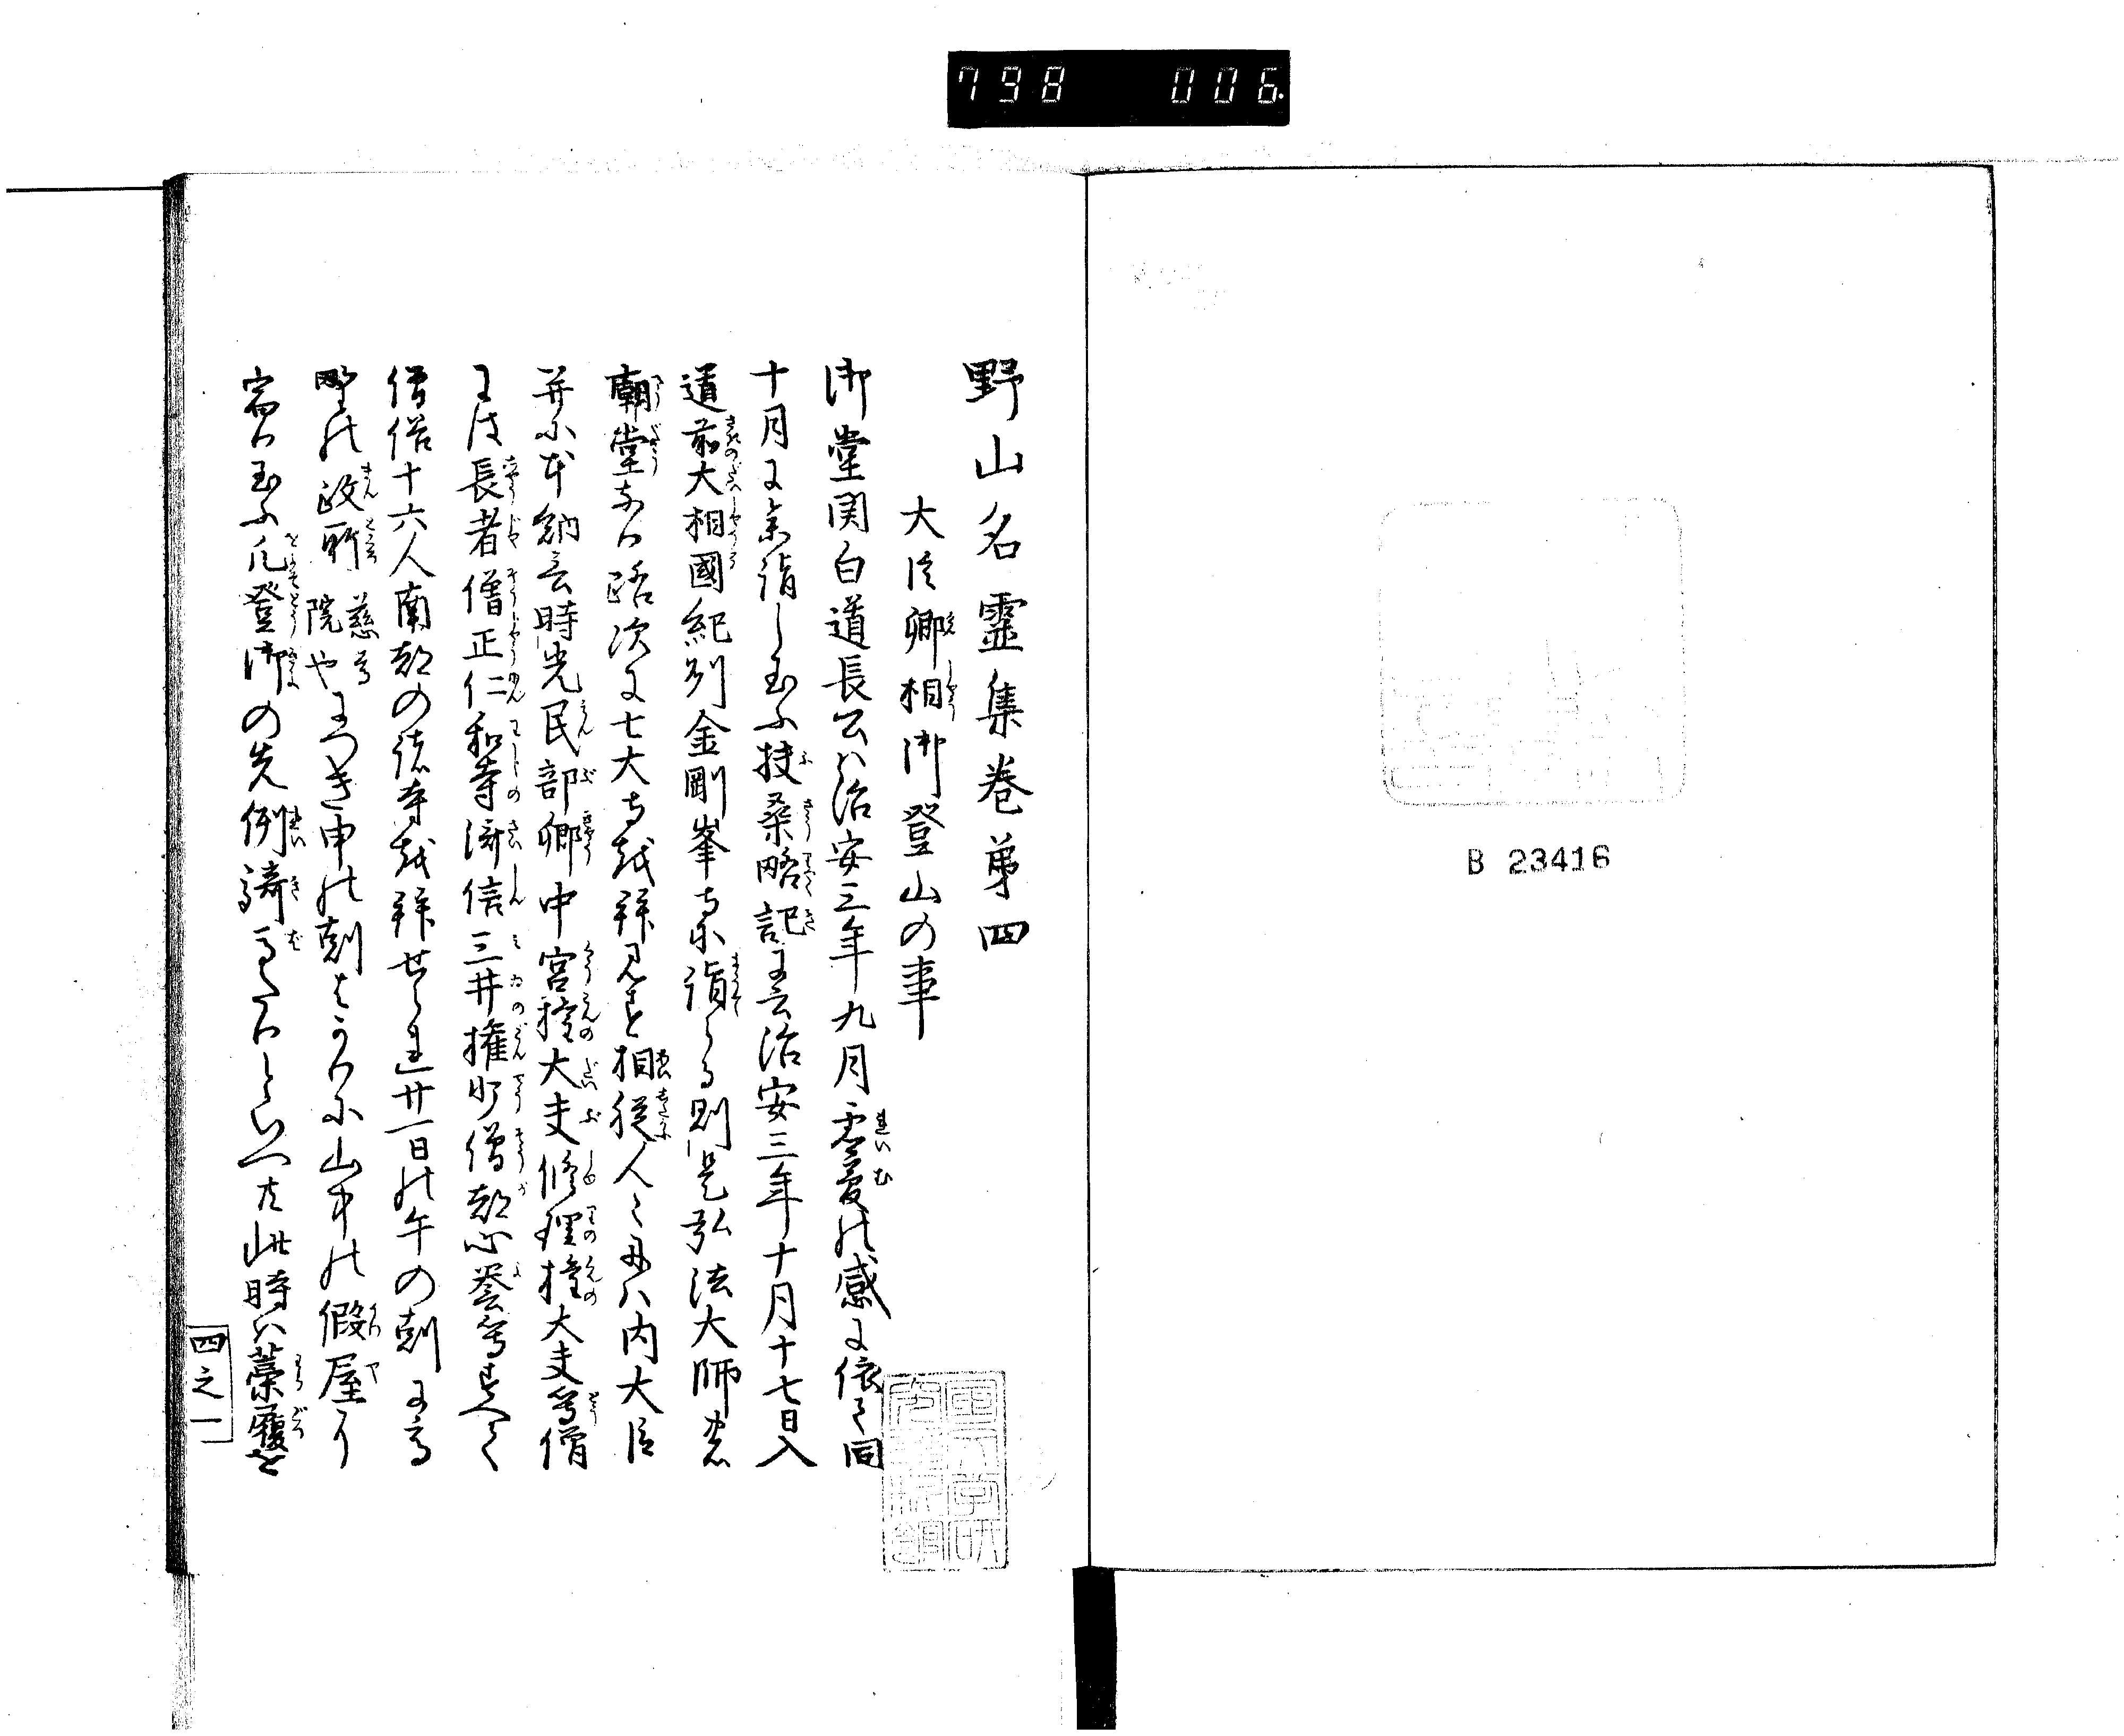 798 006
B 23416
野山名霊集巻第四
大臣卿相御登山の事
御堂関白道長公ハ治安三年九月霊夢の感に依て同
十月に参詣し玉ふ扶桑略記に云治安三年十月十七日入
道前大相國紀州金剛峯寺に詣る則是弘法大師の
廟堂なり路次に七大寺を拝見す相従人々ハ内大臣
并に納言時光民部卿中宮権大夫修理権大夫等僧
には長者僧正仁和寺済信三井権少僧都心誉等すべて
僧俗十六人南都の諸寺を拝せられ廿一日の午の刻に高
野の政所慈尊院やにつき申の刻ばかりに山中の假屋に
宿り玉ふ凡登御の先例騎馬なりといへ共此時ハ藁履を
四之一